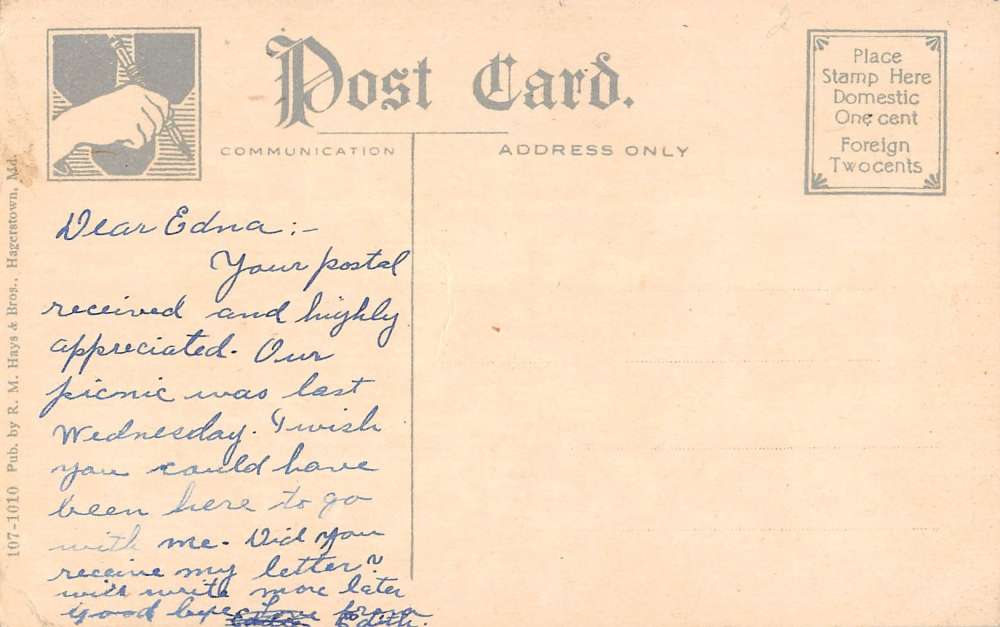 Post Card.
COMMUNICATION
ADDRESS ONLY
Place
Stamp Here
Domestic
One cent
Foreign
Two cents
107-1010 Pub. by R. M. Hays & Bros., Hagerstown, Md.
Dear Edna:-
Your postal
received and highly
appreciated. Our
picnic was last
Wednesday. I wish
you could have
been here to go
with me. Did you
receive my letter?
will write more later
Good bye Love from
Edith.